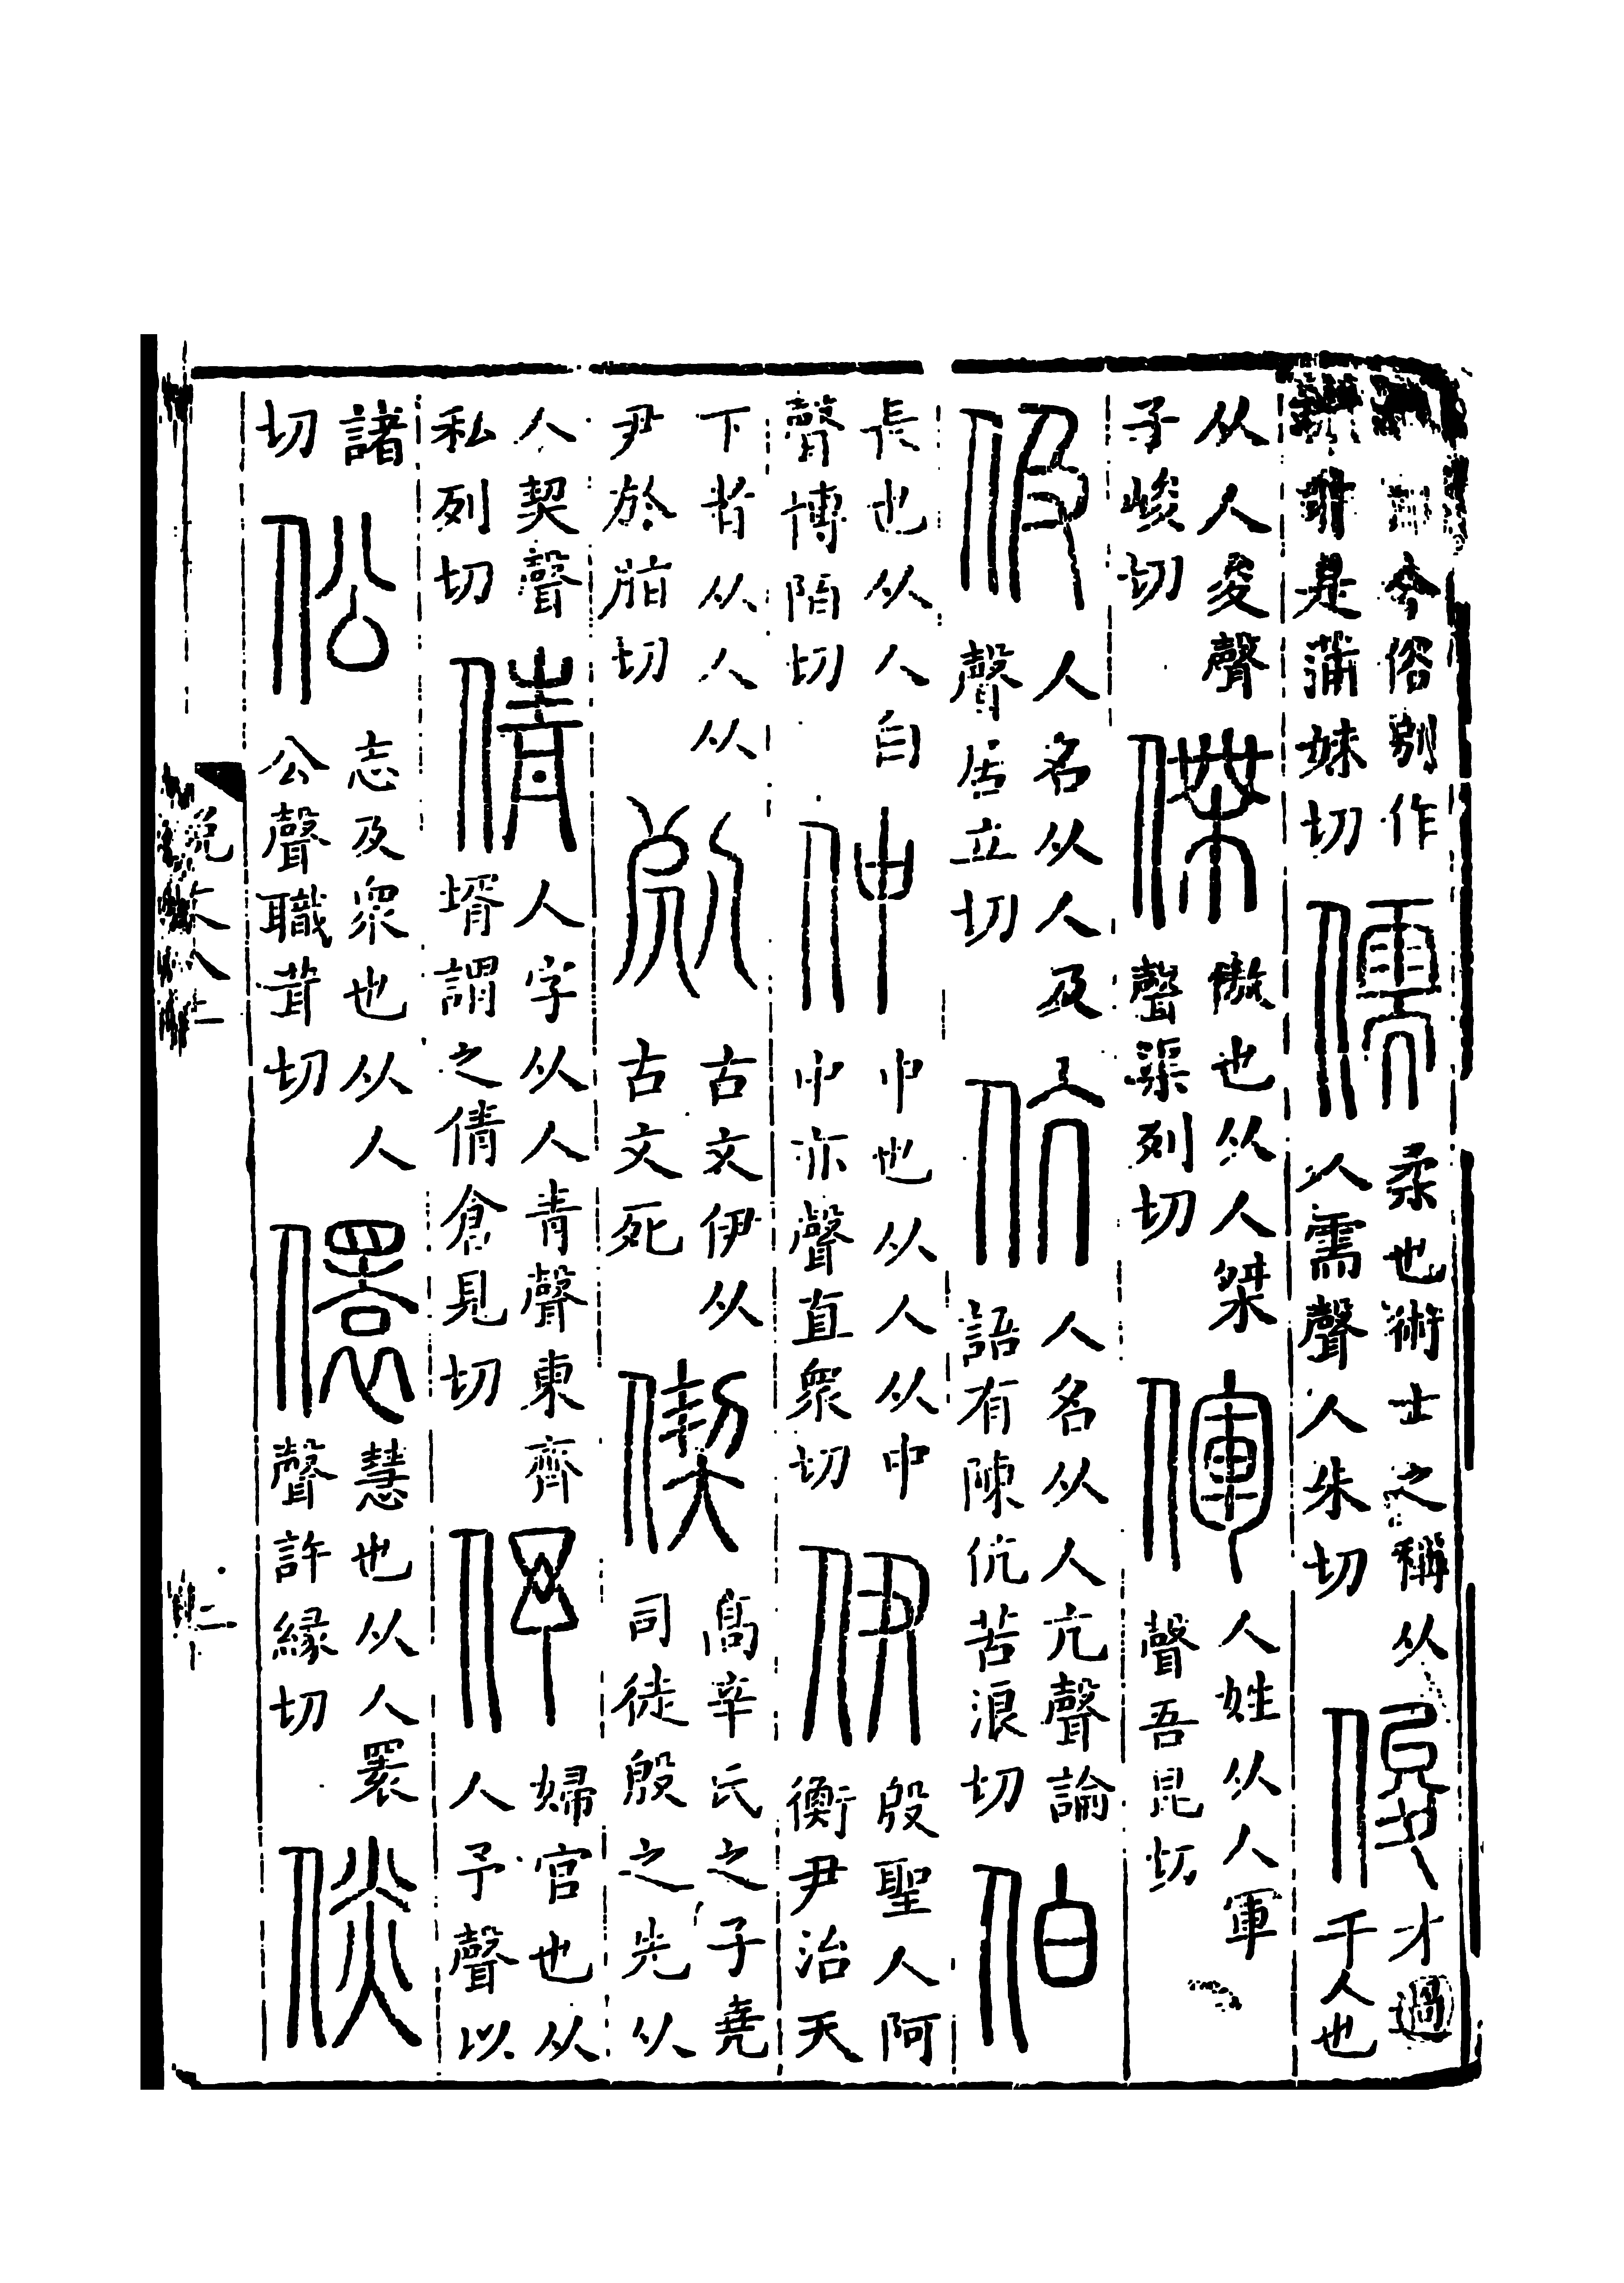 今俗別作
非是蒲妹切
儒
柔也術士之稱从
人需聲人朱切
俊
才過
千人也
从人夋聲
子峻切
傑
傲也从人桀
聲渠列切
㑮
人姓从人軍
聲吾昆切
伋
人名从人及
聲居立切
伉
人名从人亢聲論
語有陳伉苦浪切
伯
長也从人白
聲博陌切
仲
中也从人从中
中亦聲直眾切
伊
殷聖人阿
衡尹治天
下者从人从
尹於脂切
古文伊从
古文死
偰
高辛氏之子堯
司徒殷之先从
人契聲
私列切
倩
人字从人青聲東齊
壻謂之倩倉見切
伃
婦官也从
人予聲以
諸
切
伀
志及眾也从人
公聲職茸切
儇
慧也从人瞏
聲許緣切
倓
說文八上
二